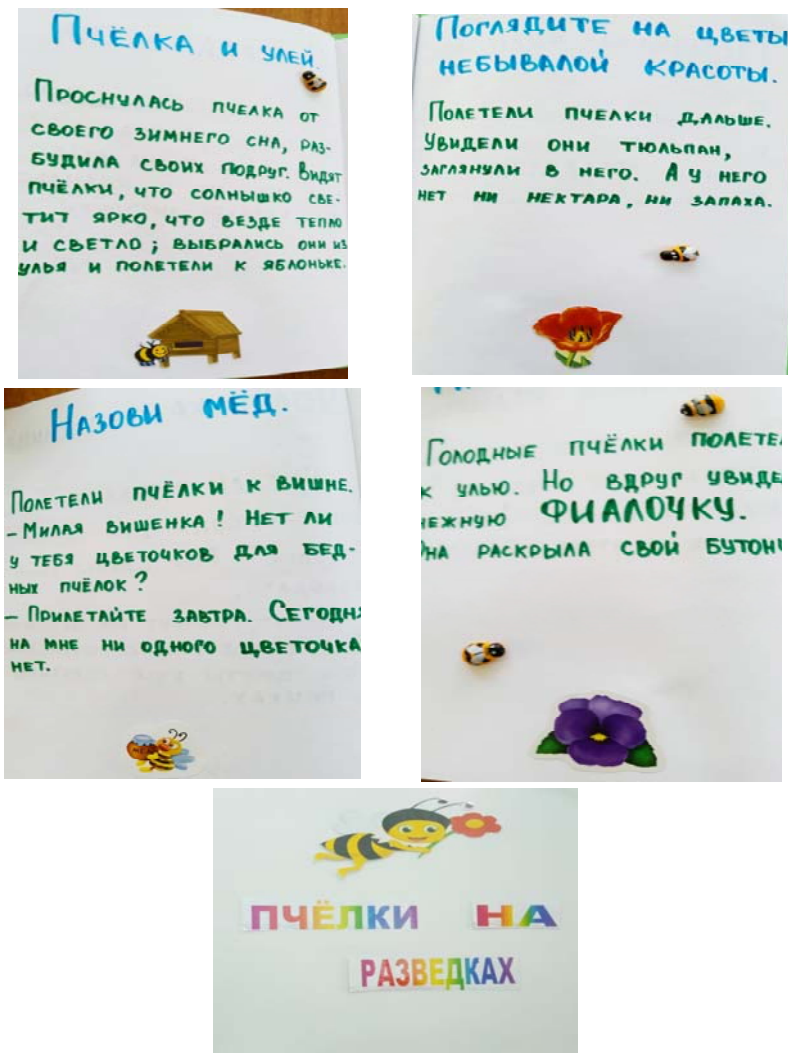 Пчёлка и улей.
Проснулась пчелка от
своего зимнего сна, раз-
будила своих подруг. Видят
пчёлки, что солнышко све-
тит ярко, что везде тепло
и светло; выбрались они из
улья и полетели к яблоньке.
Поглядите на цветы
небывалой красоты.
Полетели пчелки дальше.
Увидели они тюльпан,
заглянули в него. А у него
нет ни нектара, ни запаха.
Назови мёд.
Полетели пчёлки к вишне.
- Милая вишенка! Нет ли
у тебя цветочков для бед-
ных пчёлок?
- Прилетайте завтра. Сегодня
на мне ни одного цветочка
нет.
Голодные пчёлки полете
к улью. Но вдруг увиде
нежную ФИАЛОЧКУ.
Она раскрыла свой бутон
ПЧЁЛКИ НА
РАЗВЕДКАХ